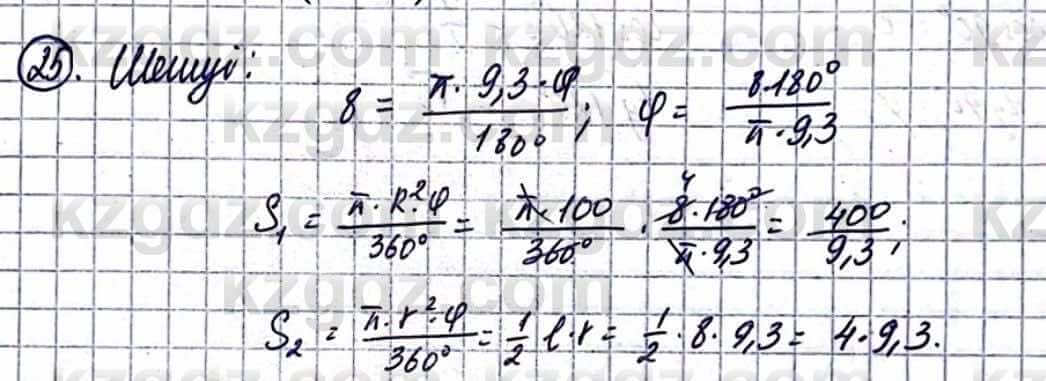 25. Шешуі:
8 = π · 9,3 · φ / 180°; φ = 8·180° / π · 9,3
S₁ = π · R² · φ / 360° = π · 100 / 360° · 8 · 180° / π · 9,3 = 400 / 9,3;
4
S₂ = π · r² · φ / 360° = 1/2 l · r = 1/2 · 8 · 9,3 = 4 · 9,3.
kzgdz.com